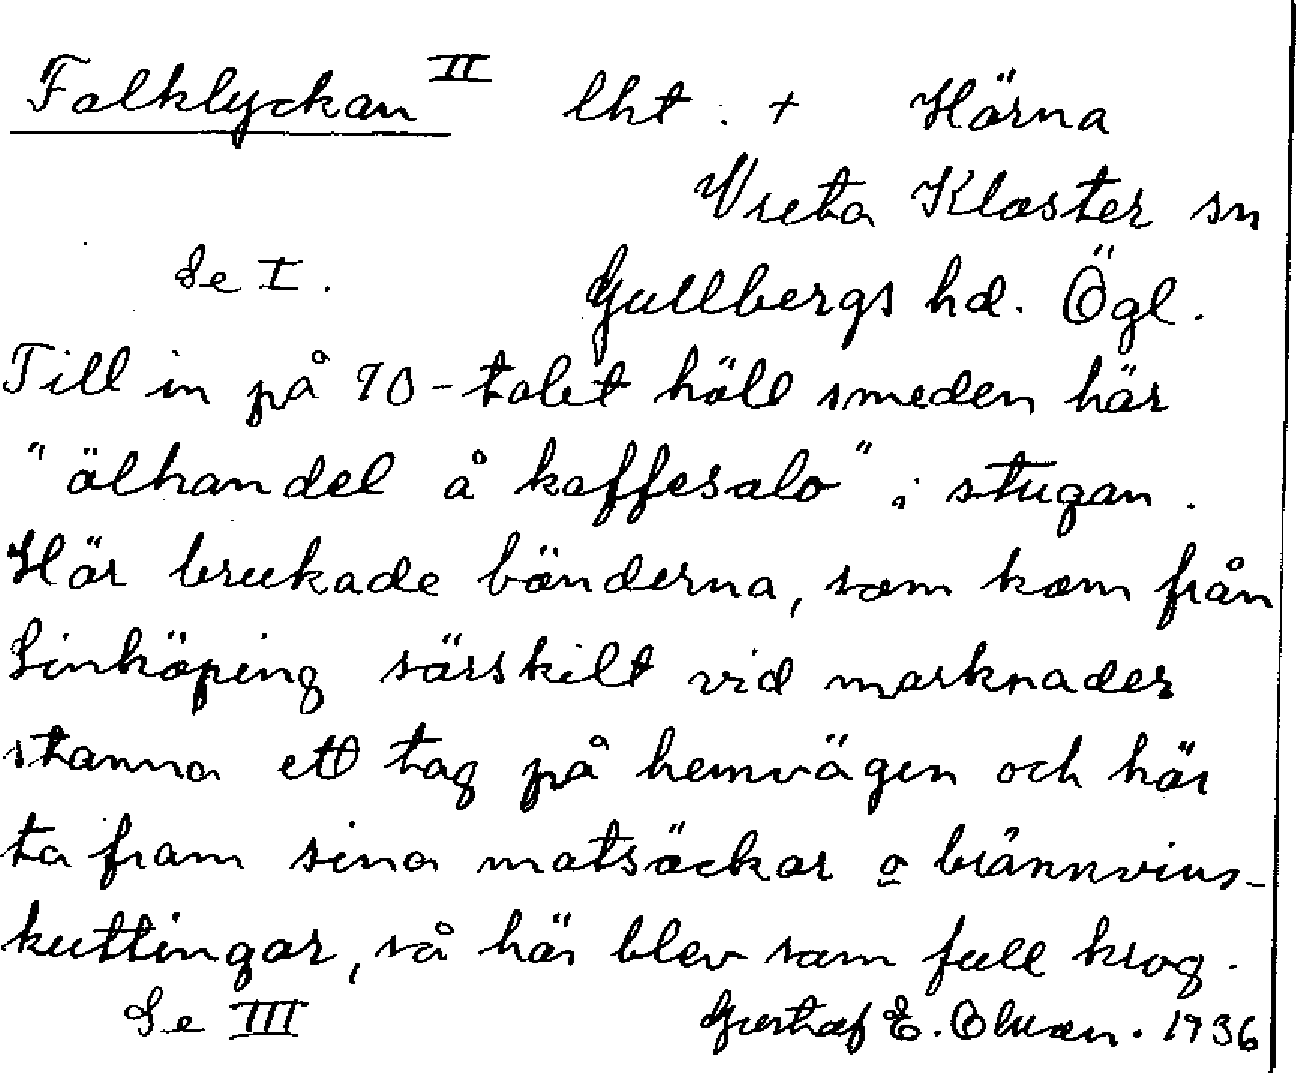 Falklyckan II lht. + Härna
Vreta Kloster sn
Se I. Gullbergs hd. Ögl.
Till in på 90-talet höll smeden här
"ölhandel å kaffesalo" i stugan.
Här brukade bönderna, som kom från
Linköping särskilt vid marknader
stanna ett tag på hemvägen och här
ta fram sina matsäckar o brännvins-
kuttingar, så här blev som full krog.
Se III Gustaf E. Olsson. 1936